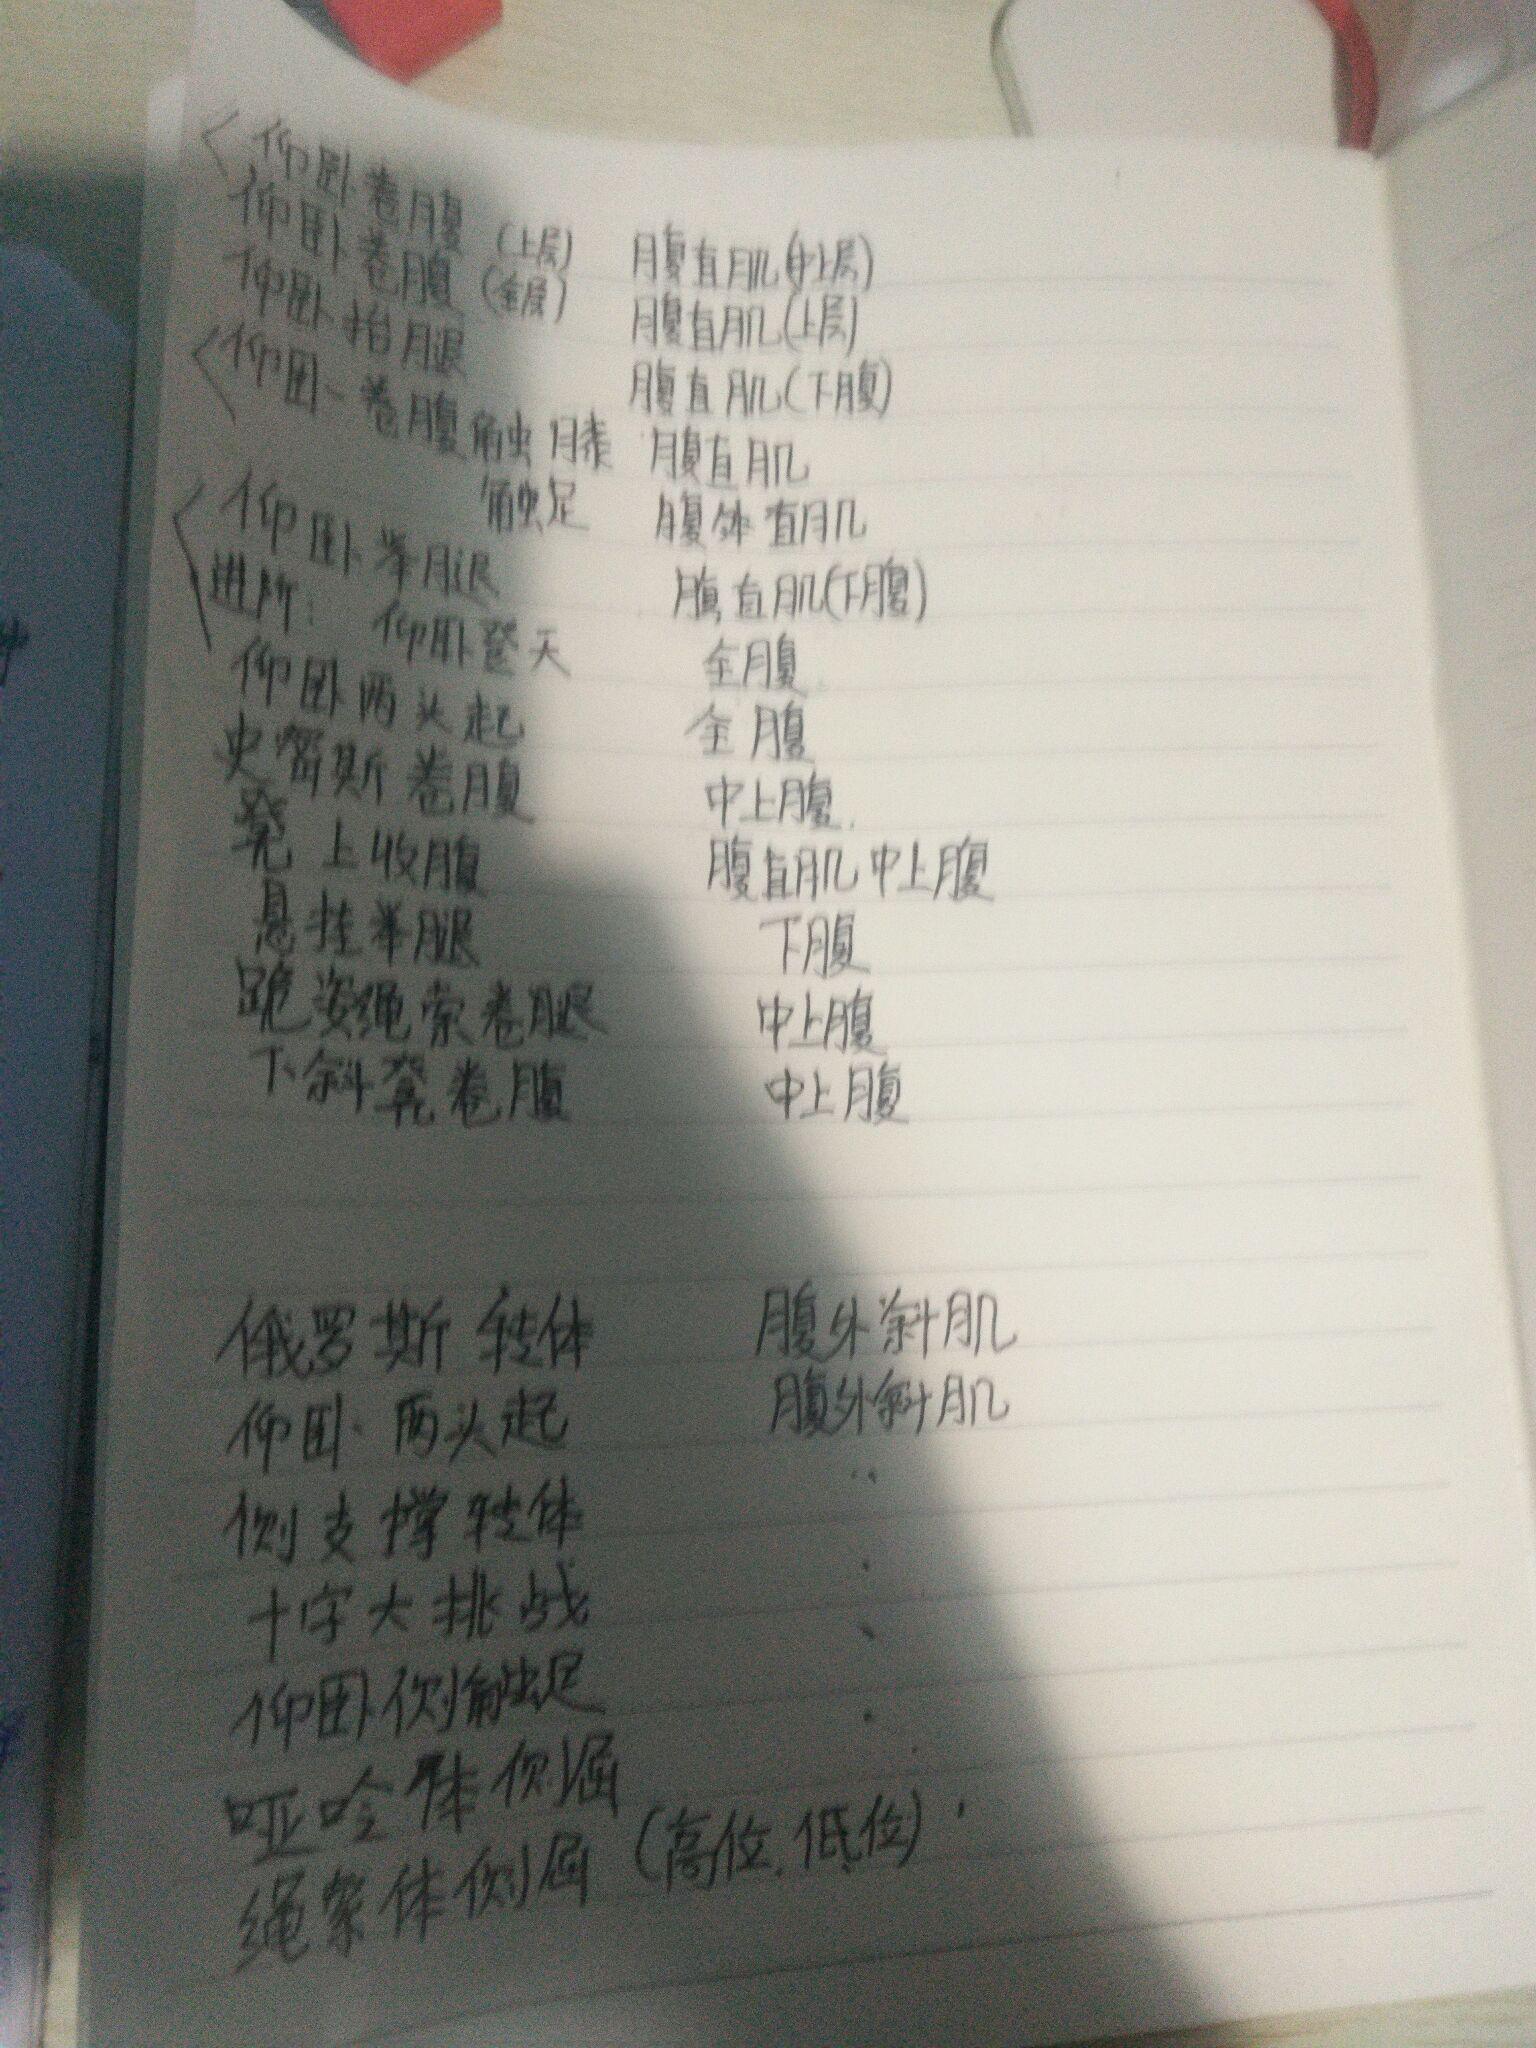 仰卧卷腹
仰卧卷腹 (上层) 腹直肌(中上层)
仰卧抬腿 (全层) 腹直肌(上层)
仰卧卷腹触膝 腹直肌(下腹)
腹直肌
触足 腹体直肌
仰卧举腿 腹直肌(下腹)
进阶: 仰卧登天 全腹
仰卧两头起 全腹
史密斯卷腹 中上腹
凳上收腹 腹直肌 中上腹
悬挂举腿 下腹
跪姿绳索卷腿 中上腹
下斜凳卷腹 中上腹
俄罗斯转体 腹外斜肌
仰卧两头起 腹外斜肌
侧支撑转体
十字大挑战
仰卧侧触足
哑呤体侧屈
绳索体侧屈 (高位,低位)